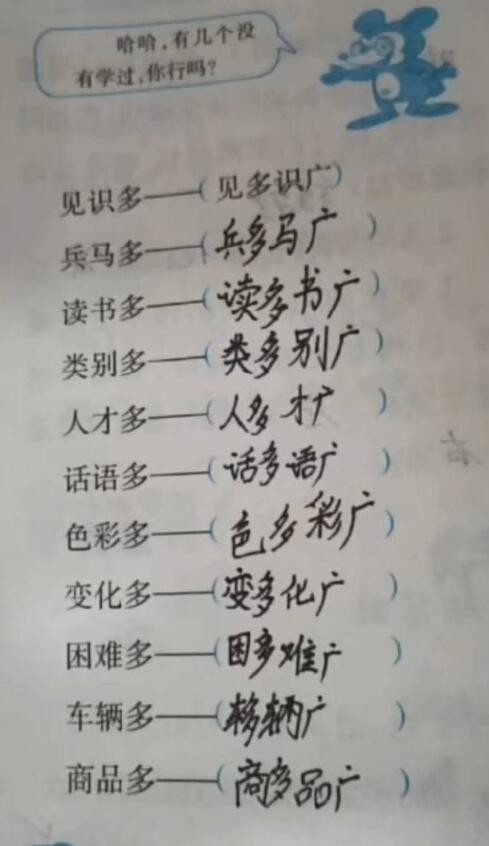 哈哈,有几个没
有学过,你行吗?
见识多——(见多识广)
兵马多——(兵多马广)
读书多——(读多书广)
类别多——(类多别广)
人才多——(人多才广)
话语多——(话多语广)
色彩多——(色多彩广)
变化多——(变多化广)
困难多——(困多难广)
车辆多——(车多辆广)
商品多——(商多品广)